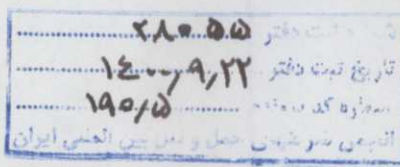 شماره ثبت دفتر ۲۸۰۵۵
تاریخ ثبت دفتر ۱۴۰۰٫۹٫۲۲
شماره کد ۱۹۰٫۵
انجمن حمل و نقل بین المللی ایران